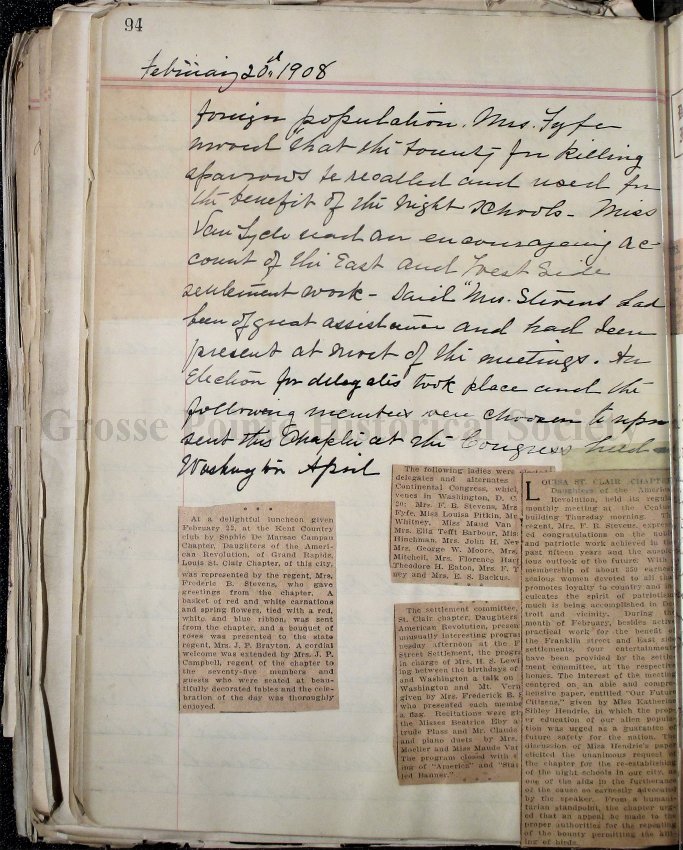 94
February 20th 1908
foreign population. Mrs. Fyfe
moved "that the bounty for killing
sparrows be recalled and used for
the benefit of the night schools- Miss
Van read an encouraging ac-
count of the East and West Side
settlement work- said "Mrs. Stevens had
been of great assistance and had been
present at most of the meetings. An
Election for delegates took place and the
following members were choosen to repre
sent this Chapter at the Congress held
Washington April
Grosse Pointe Historical Society
At a delightful luncheon given
February 22, at the Kent Country
club by Sophie De Marsac Campau
Chapter, Daughters of the Ameri-
can Revolution, of Grand Rapids,
Louis St. Clair Chapter, of this city,
was represented by the regent, Mrs.
Frederic B. Stevens, who gave
greetings from the chapter. A
basket of red and white carnations
and spring flowers, tied with a red,
white and blue ribbon, was sent
from the chapter, and a bouquet of
roses was presented to the state
regent, Mrs. J. P. Brayton. A cordial
welcome was extended by Mrs. J. P.
Campbell, regent of the chapter to
the seventy-five members and
guests who were seated at beau-
tifully decorated tables and the cele-
bration of the day was thoroughly
enjoyed.
The following ladies were elected
delegates and alternates
Continental Congress, which
venes in Washington, D. C.
20: Mrs. F. B. Stevens, Mrs
Fyfe, Miss Louisa Pitkin, Mr
Whitney, Miss Maud Van
Mrs. Ella Tefft Barbour, Miss
Hinchman, Mrs. John H. Ney
Mrs. George W. Moore, Mrs.
Mitchell, Mrs. Florence
Theodore H. Eaton, Mrs. F. T
ney and Mrs. E. S. Backus.
The settlement committee,
St. Clair chapter, Daughters
American Revolution, pr
unusually interesting progra
tuesday afternoon at the F
Street Settlement, the prog
in charge of Mrs. H. S. Lewi
ing between the birthdays of
and Washington a talk on
Washington and Mt. Vern
given by Mrs. Frederick B. S
who presented each membe
a flag. Recitations were gi
the Misses Beatrice Eby a
trude Plass and Mr. Claude
and piano duets by Mrs.
Moeller and Miss Maude Van
The program closed with
ing of "America" and "Star
led Banner."
LOUISA ST. CLAIR CHAPTER
Daughters of the American
Revolution, held its regular
monthly meeting at the Century
building Thursday morning. The
regent, Mrs. F. B. Stevens, express-
ed congratulations on the noble
and patriotic work achieved in the
past fifteen years and the auspic-
ious outlook of the future: With
membership of about 350 earnest
zealous women devoted to all that
promotes loyalty to country and in-
culcates the spirit of patriotism
much is being accomplished in De-
troit and vicinity. During the
month of February, besides active
practical work for the benefit of
the Franklin street and East side
settlements, four entertainments
have been provided by the settle-
ment committee, at the respective
homes. The interest of the meeting
centered on an able and compre-
hensive paper, entitled "Our Future
Citizens," given by Miss Katherine
Sibley Hendrie, in which the prop-
er education of our alien popula-
tion was urged as a guarantee of
future safety for the nation. The
discussion of Miss Hendrie's paper
elicited the unanimous request of
the chapter for the re-establishing
of the night schools in our city, as
one of the aids in the furtherance
of the cause so earnestly advocated
by the speaker. From a humani-
tarian standpoint, the chapter urg-
ed that an appeal be made to the
proper authorities for the repealing
of the bounty permitting the kill-
ing of birds.